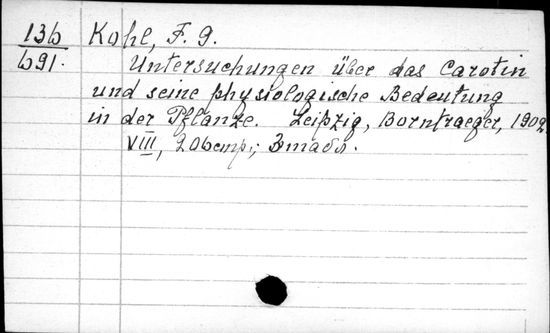 136 Kohl, F. G.
691. Untersuchungen über das Carotin
und seine physiologische Bedeutung
in der Pflanze. Leipzig, Borntraeger, 1902
VIII, 206 стр.; 3 табл.